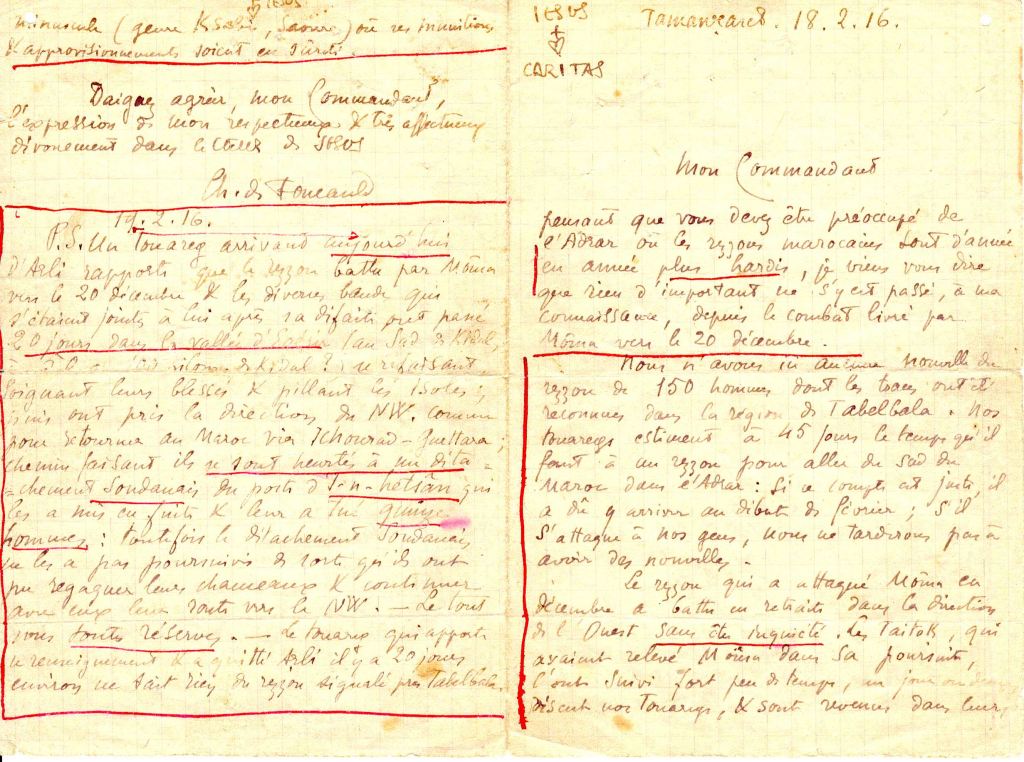 JESUS
minuscule (genre Ksabi, Saoura) où ses munitions
& approvisionnements soient en sûreté.
Daignez agréer, mon Commandant,
l'expression de mon respectueux & très affectueux
dévouement dans le CŒUR de JESUS
Ch. de Foucauld
19.2.16.
P.S. Un touareg arrivant aujourd'hui
d'Asli rapporte que le rezzou battu par Môma
vers le 20 décembre & les diverses bandes qui
s'étaient jointes à lui après sa défaite ont passé
20 jours dans la vallée d' (au Sud de Kidal,
à kilom. de Kidal?) se refaisant,
soignant leurs blessés & pillant les isolés;
puis ont pris la direction du NW. comme
pour retourner au Maroc via Ichourad-Guettara;
chemin faisant ils se sont heurtés à un déta-
-chement Soudanais du poste d'I-n-hetisan qui
les a mis en fuite & leur a tué quinze
hommes: toutefois le détachement Soudanais
ne les a pas poursuivis de sorte qu'ils ont
pu regagner leurs chameaux & continuer
avec eux leur route vers le NW. — Le tout
sous toutes réserves. — Le touareg qui apporte
ce renseignement & a quitté Asli il y a 20 jours
environ ne sait rien du rezzou signalé près Tabelbala.
JESUS
CARITAS
Tamanrasset. 18.2.16.
Mon Commandant
pensant que vous devez être préoccupé de
l'Adrar où les rezzous marocains sont d'année
en année plus hardis, je viens vous dire
que rien d'important ne s'y est passé, à ma
connaissance, depuis le combat livré par
Môma vers le 20 décembre.
Nous n'avons eu aucune nouvelle du
rezzou de 150 hommes dont les traces ont été
reconnues dans la région de Tabelbala. Nos
touaregs estiment à 45 jours le temps qu'il
faut à un rezzou pour aller du sud du
Maroc dans l'Adrar: si ce compte est juste, il
a dû y arriver au début de février; s'il
s'attaque à nos gens, nous ne tarderons pas à
avoir des nouvelles.
Le rezzou qui a attaqué Môma en
décembre a battu en retraite dans la direction
de l'Ouest sans être inquiété. Les Taitok, qui
avaient relevé Môma dans sa poursuite,
l'ont suivi fort peu de temps, un jour ou deux
disent nos touaregs, & sont revenus dans leur